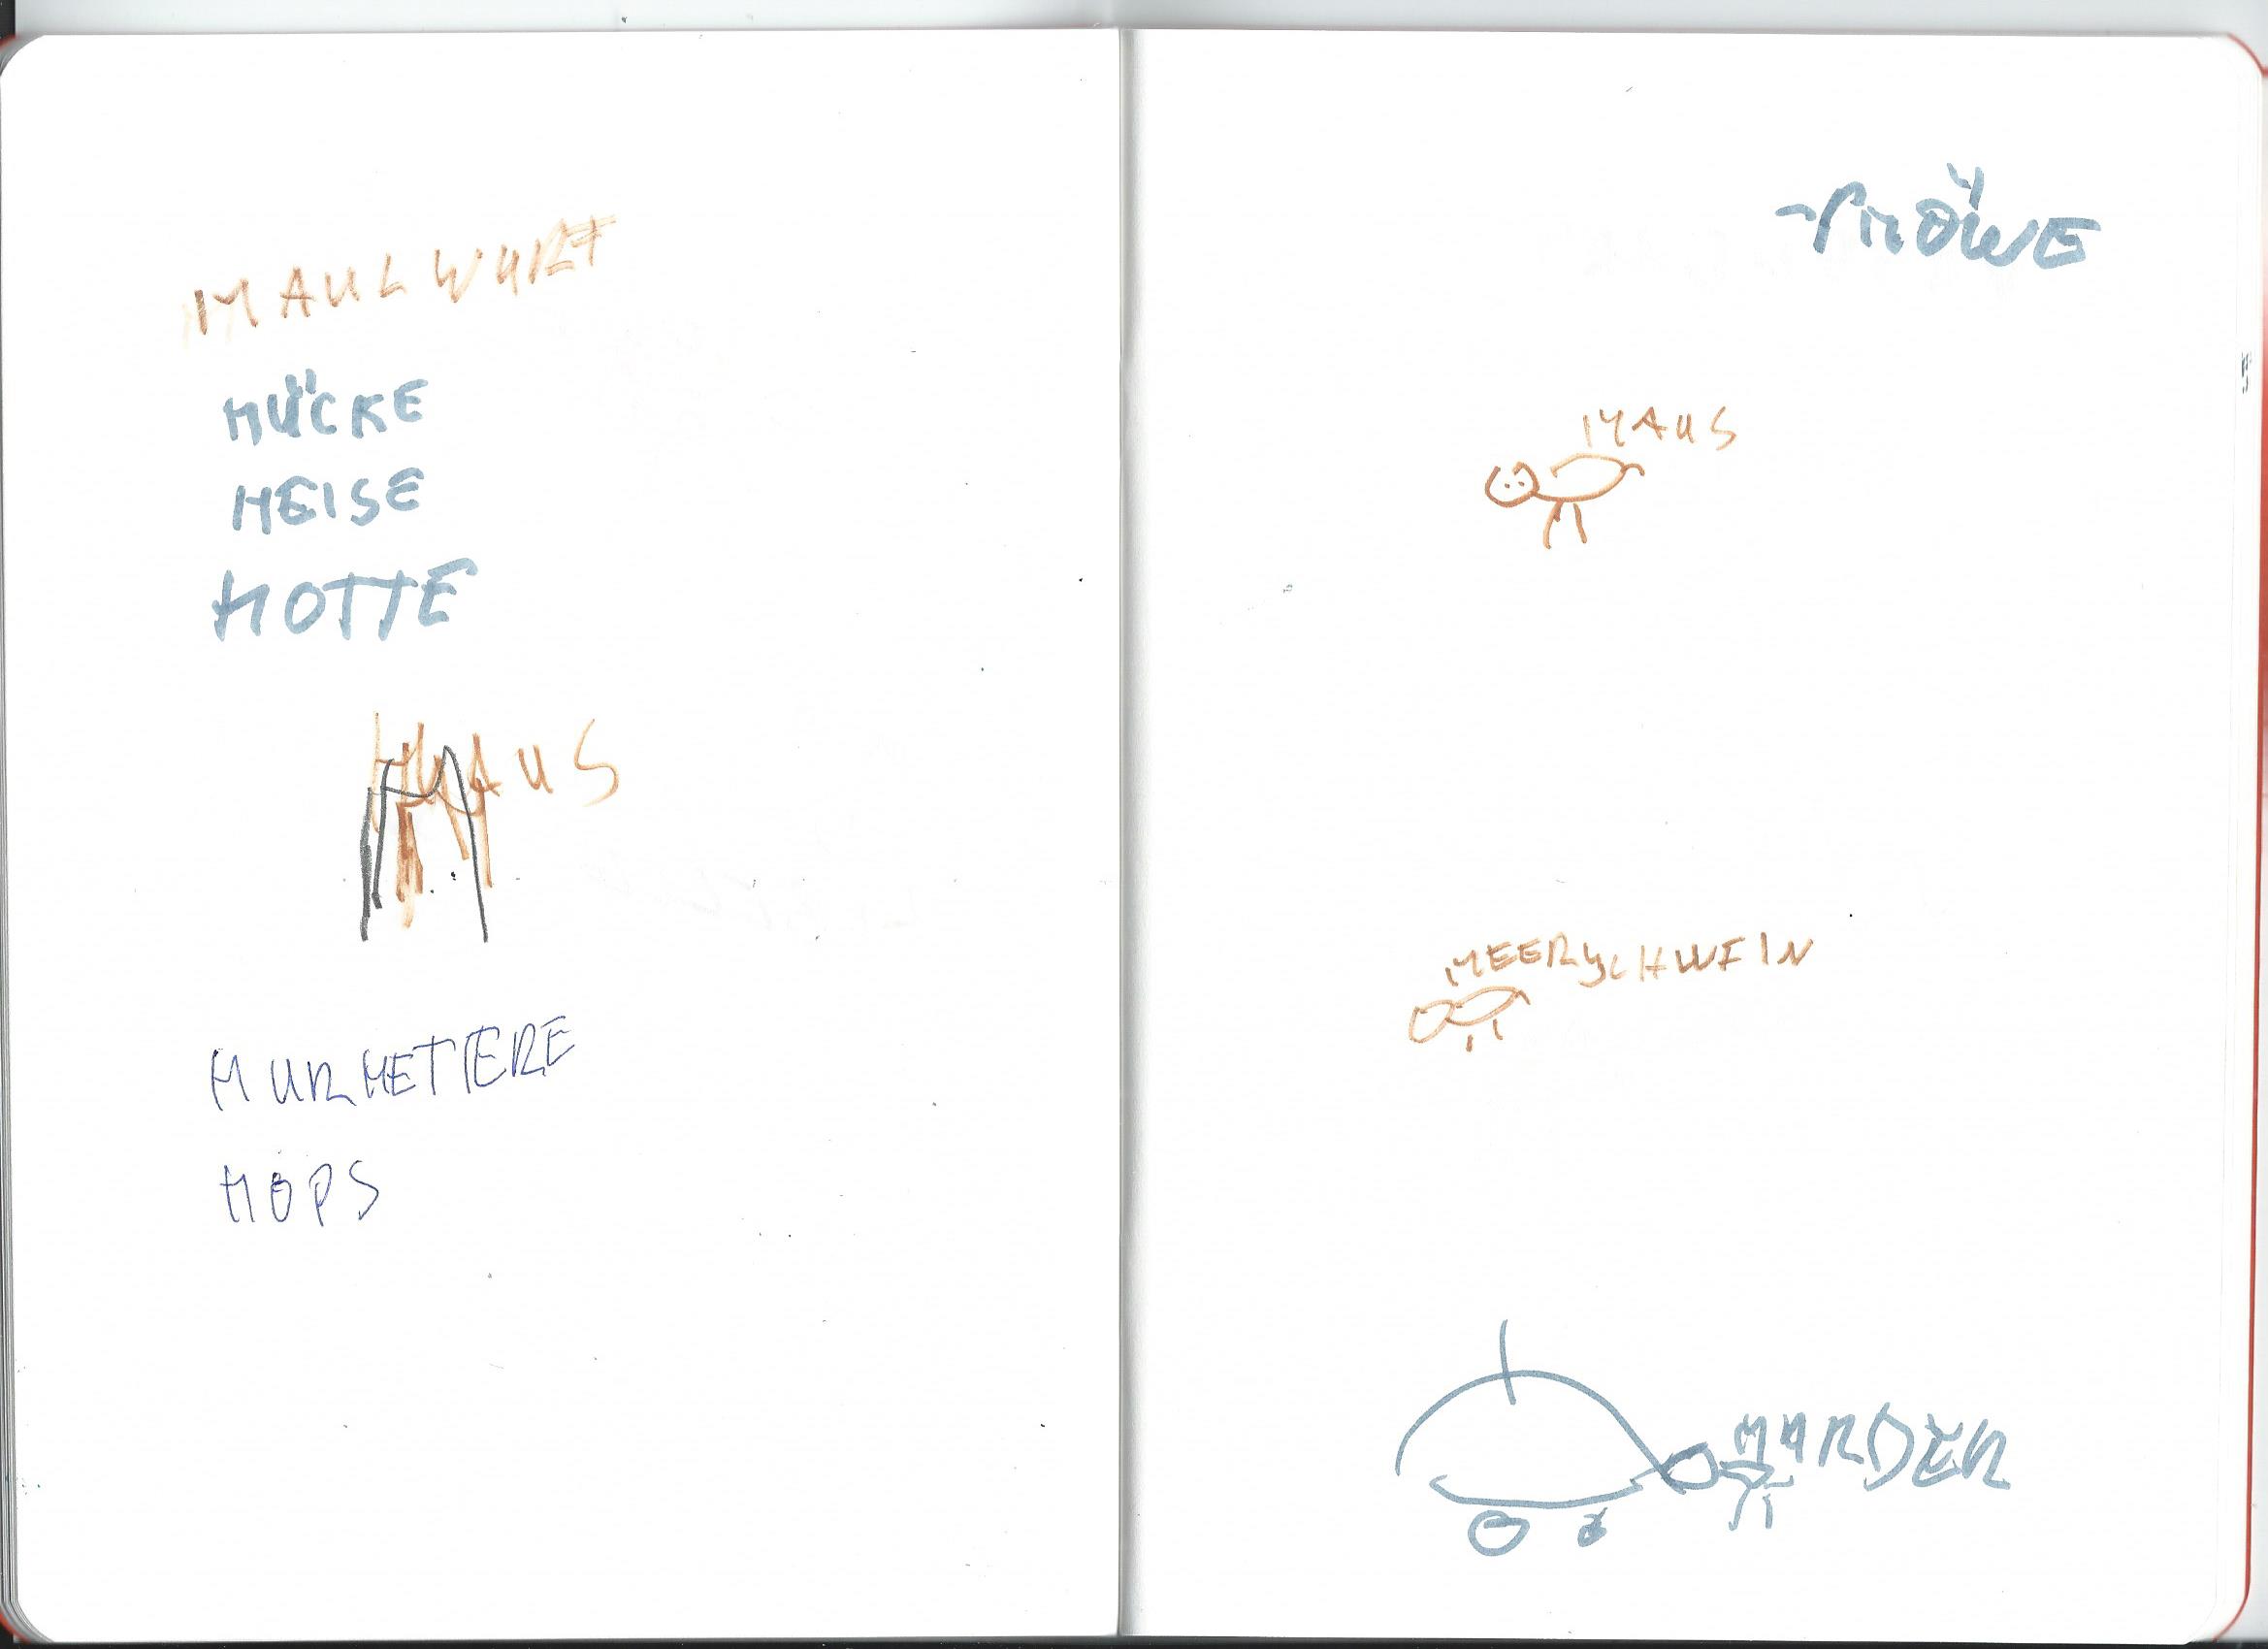 MAULWURF
MÜCKE
MEISE
MOTTE
MAUS
MURMETIERE
MOPS
MÖWE
MAUS
MEERSCHWEIN
MARDER